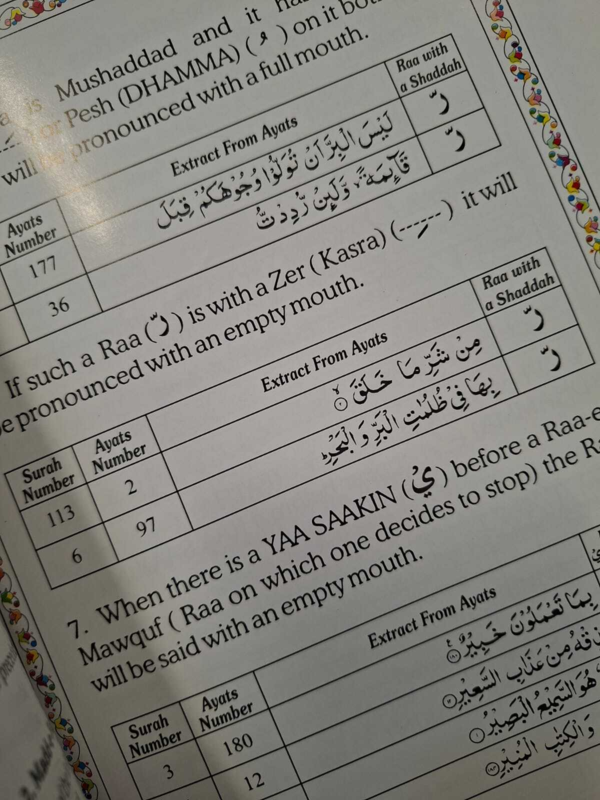 is Mushaddad and it
or Pesh (DHAMMA) ( ُ ) on it
will be pronounced with a full mouth.
Ayats Number | Extract From Ayats | Raa with a Shaddah
177 | لَيْسَ الْبِرَّ اَنْ تُوَلُّوْا وُجُوْهَكُمْ قِبَلَ | رّ
36 | قَآئِمَةً ۙ وَّلَئِنْ رُّدِدْتُّ | رّ
If such a Raa (رّ) is with a Zer (Kasra) (------) it will
be pronounced with an empty mouth.
Surah Number | Ayats Number | Extract From Ayats | Raa with a Shaddah
113 | 2 | مِنْ شَرِّ مَا خَلَقَ | رّ
6 | 97 | بِهَا فِيْ ظُلُمٰتِ الْبَرِّ وَ الْبَحْرِ | رّ
7. When there is a YAA SAAKIN (يْ) before a
Mawquf ( Raa on which one decides to stop) the
will be said with an empty mouth.
Surah Number | Ayats Number | Extract From Ayats
3 | 180 | بِمَا تَعْمَلُوْنَ خَبِيْرٌ
12 | مِنْ عَذَابِ السَّعِيْرِ
هُوَ السَّمِيْعُ الْبَصِيْرُ
وَ الْكِتٰبِ الْمُنِيْرِ